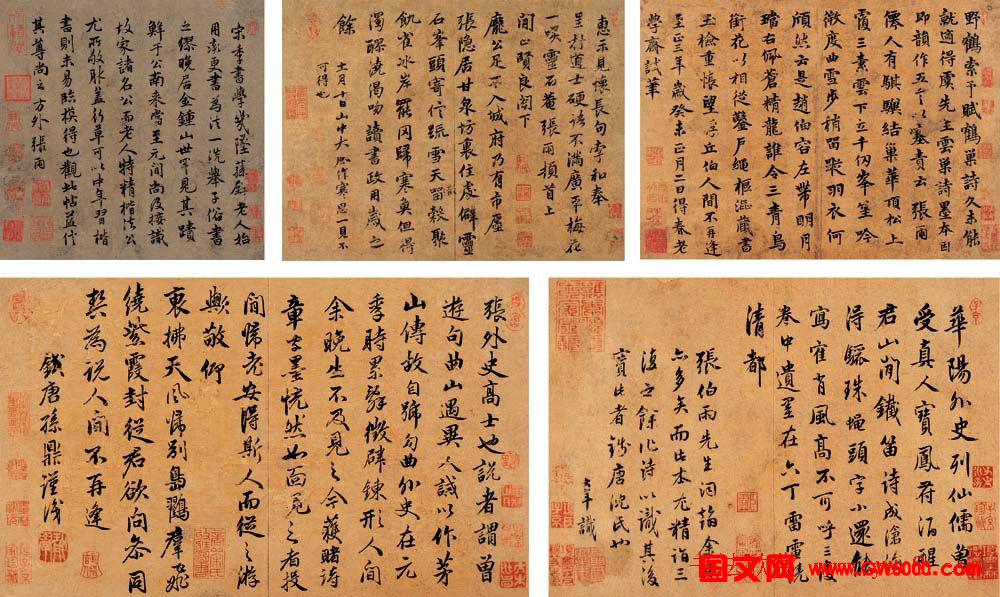 野鶴索予賦鶴巢詩久未能
就適得虞先生雲巢詩墨本因
即韻作五言以塞責云張雨
僊人有騏驥結巢華頂松上
霞三素雲下立千仞岑笙吟
微度曲雪步稍留跡羽衣何
頎然云是趙伯容左帶明月
璫右佩蒼精龍誰令三青鳥
銜花以相從鑿戶繩樞漚藏書
玉檢重悵望浮丘伯人間不再逢
至正三年歲癸未正月二日得春老
學齋試筆
惠示見懷長句率和奉
呈村道士硬語不滿廣平梅花
一嗅靈石菴張雨頓首上
間正賢良閣下
龐公足不入城府乃有市廛
張隱居甘泉坊裏住處僻靈
石峯頭寄信疏雪天留聚
飢雀冰岸罷罔歸寒奐但得
濁醪澆渴吻讀書政用歲之
餘
十一月十日山中大作寒思一見不
可得也
宋季書學幾墜蓀壁老人始
用更書為法一洗舉子俗書
之繆晚居金鍾山世罕見其蹟
鮮于公南来當至元間尚及接識
故家諸石公而老人特精楷法公
尤所敬服蓋行草可以中年習楷
書則未易臨摸得也觀此帖益信
其尊尚之方外張雨
華陽外史列仙儒曾
受真人寶鳳符酒醒
君山間鐵笛詩成滄海
得驪珠蝇頭字小還能
寫寉背風高不可呼三復
卷中遺墨在六丁雷電繞
清都
張伯雨先生詞翰余見
亦多矣而此本尤精詣三
復之餘作詩以識其後
寶此者錢唐沈氏也
識
張外史高士也說者謂曾
遊句曲山遇異人誡以作茅
山傳故自號句曲外史在元
季時累辭徵辟鍊形人間
余晚生不及見之今獲睹詩
章字墨恍然如面覓之者投
間歸老安得斯人而從之游
歟敬仰
衷拂天風歸別島鸐羣飛
繞紫霞封從君欲向參同
契為説人間不再逢
錢唐孫鼎謹識
国文网
www.gw5000.com